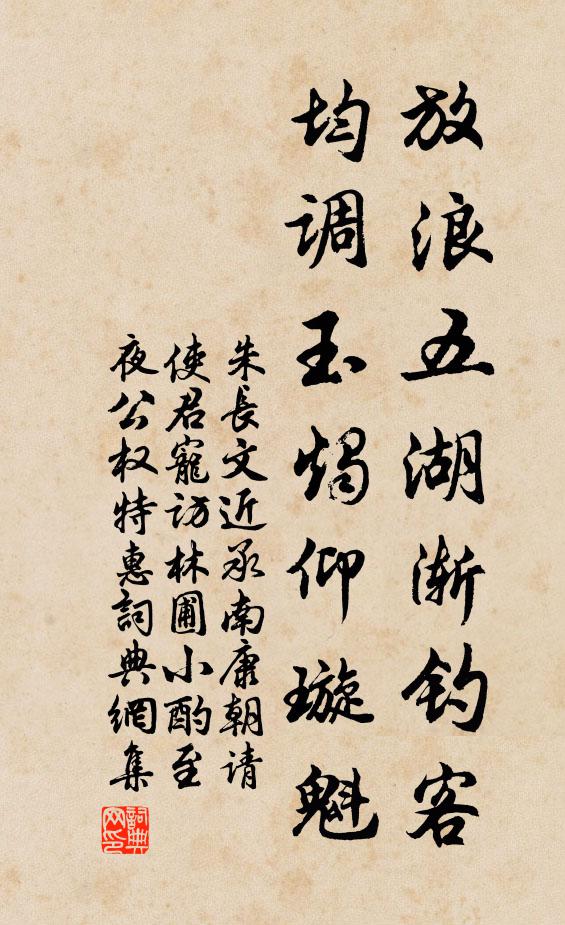 放浪五湖渐钓客
均调玉燭仰璇魁
朱長文近承南康朝请
使君寵访林圃小酌至
夜公权特惠詞典網集
詞典网印